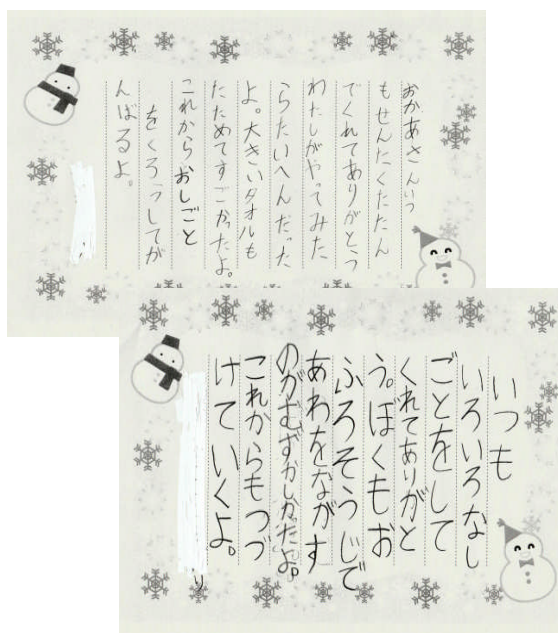 おかあさんいつ
もせんたくたたん
でくれてありがとう
わたしがやってみた
らたいへんだった
よ。大きいタオルも
たためてすごかったよ。
これからおしごと
をくろうしてが
んばるよ。
いつも
いろいろなし
ごとをして
くれてありがと
う。ぼくもお
ふろそうじで
あわをながす
のがむずかしかったよ。
これからもつづ
けていくよ。